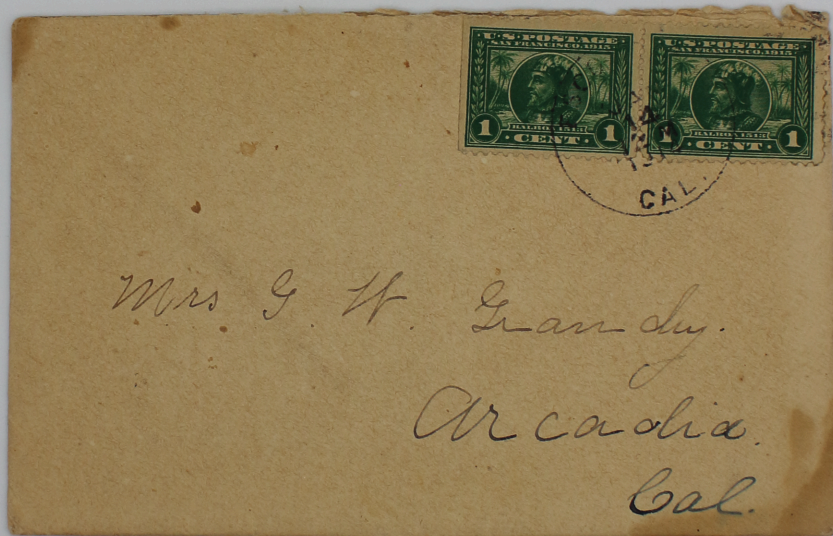 U·S·POSTAGE
SAN FRANCISCO 1915
BALBOA 1513
1 CENT 1
U·S·POSTAGE
SAN FRANCISCO 1915
BALBOA 1513
1 CENT 1
14
CAL.
Mrs G. W. Grandy.
Arcadia.
Cal.